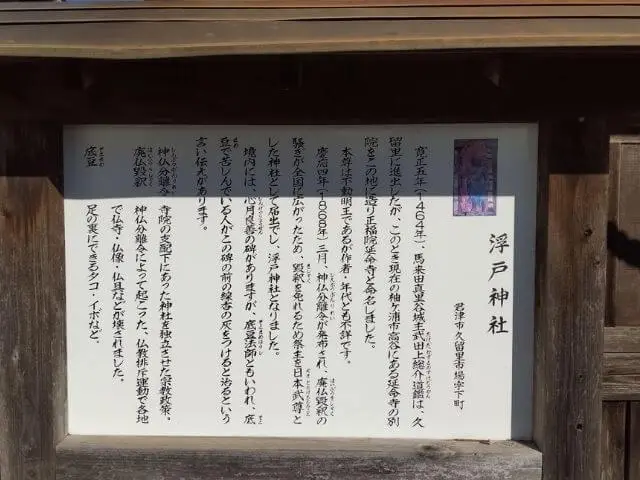 浮戸神社
君津市久留里市場字下町
寛正五年(一464年)、馬来田真里谷城主武田上総介道鑑は、久
留里に進出したが、このとき現在の袖ヶ浦市高谷にある延命寺の別
院をこの地に造り正福院延命寺と命名しました。
本尊は不動明王であるが作者・年代とも不詳です。
慶応四年(1868年)三月、神仏分離令が発布され、廃仏毀釈の
騒ぎが全国に広がったため、毀釈を免れるため祭主を日本武尊と
した神社として届出でし、浮戸神社となりました。
境内には、心月良善の碑がありますが、底豆法師ともいわれ、底
豆で苦しんでいる人がこの碑の前の線香の灰をつけると治るという
言い伝えがあります。
神仏分離令 寺院の支配下にあった神社を独立させた宗教政策。
廃仏毀釈 神仏分離令によって起こった、仏教排斥運動で各地
で仏寺・仏像・仏具などが壊されました。
底豆 足の裏にできるタコ・イボなど。